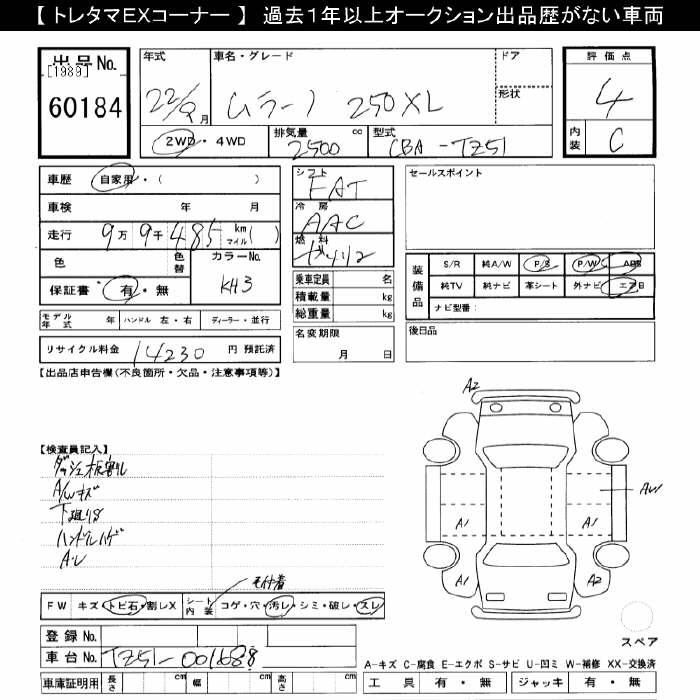 【 トレタマEXコーナー 】 過去１年以上オークション出品歴がない車両
出品No.
[1989]
60184
年式
22/9月
車名・グレード
ムラーノ 250XL
ドア
形状
評価点
4
内装 C
2WD・4WD
排気量 cc
2500
型式
CBA-TZ51
車歴 自家用・( )
車検 年 月
走行 9万9千485 km マイル( )
色
色替
カラーNo.
KH3
保証書 有・無
シフト
FAT
冷房
AAC
燃料
乗車定員 名
積載量 kg
総重量 kg
セールスポイント
装備品
S/R 純A/W P/S P/W ABS
純TV 純ナビ 革シート 外ナビ エアB
ナビ型番：
モデル年式 年 ハンドル 左・右 ディーラー・並行
名変期限
月 日
後日品
リサイクル料金 14230 円 預託済
【出品店申告欄(不良箇所・欠品・注意事項等)】
【検査員記入】
ダッシュ板割れ
A/Wキズ
下廻りS
ハンドルハゲ
A・U
A2
A1
A1
AW
A1
A2
毛付着
FW キズ・トビ石・割レX シート内装 コゲ・穴・汚レ・シミ・破レ・スレ
登録 No.
車台 No. TZ51-001688
車庫証明用 長さ cm 幅 cm 高さ cm
スペア
A-キズ C-腐食 E-エクボ S-サビ U-凹ミ W-補修 XX-交換済
工具 有・無 ジャッキ 有・無